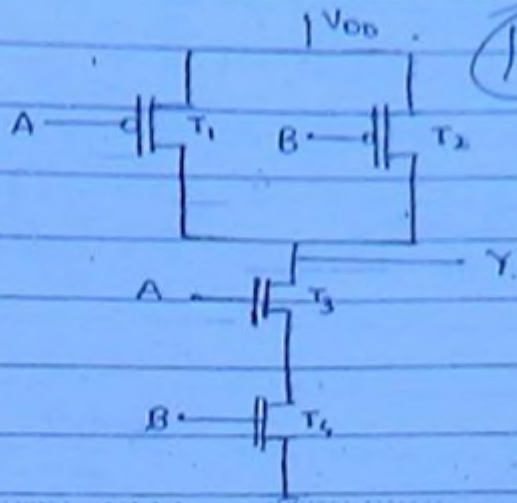 VDD
A T1 B T2
Y
A T3
B T4